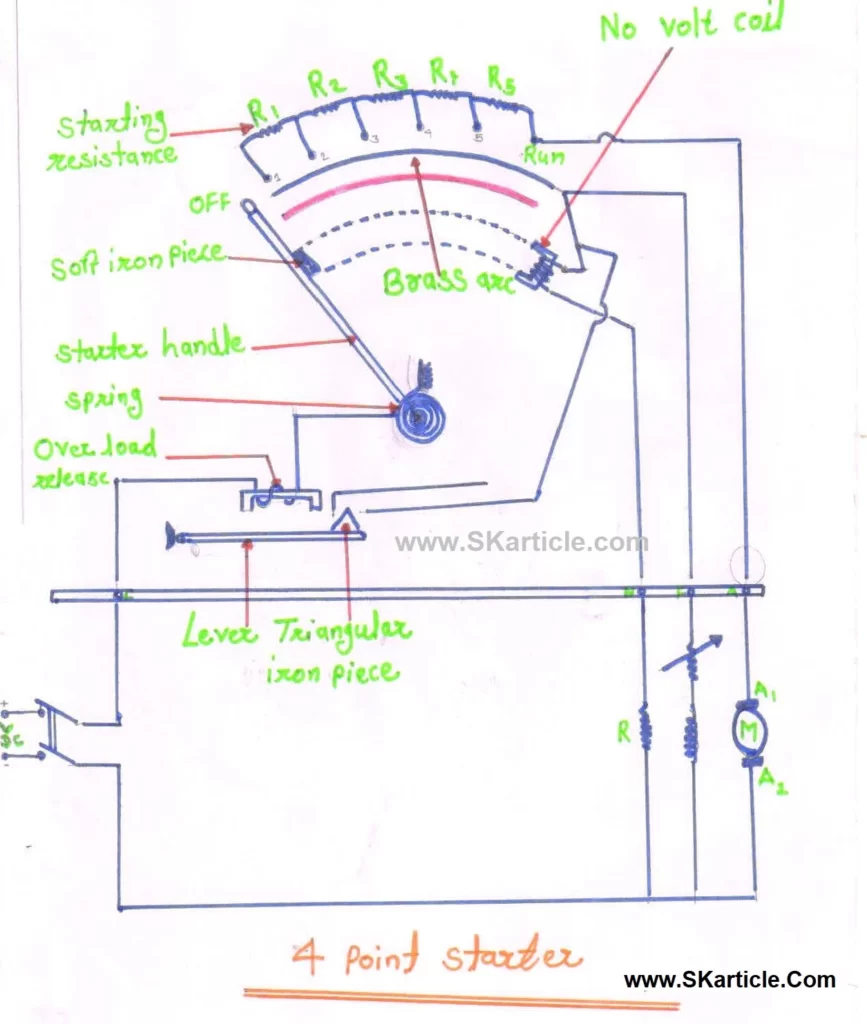 No volt coil
R1 R2 R3 R4 R5
Starting
resistance
1 2 3 4 5
Run
OFF
Soft iron piece
Brass arc
starter handle
spring
Over load
release
www.SKarticle.com
L N F A
Lever Triangular
iron piece
+
-
A1
R
M
A2
4 point starter
www.SKarticle.Com